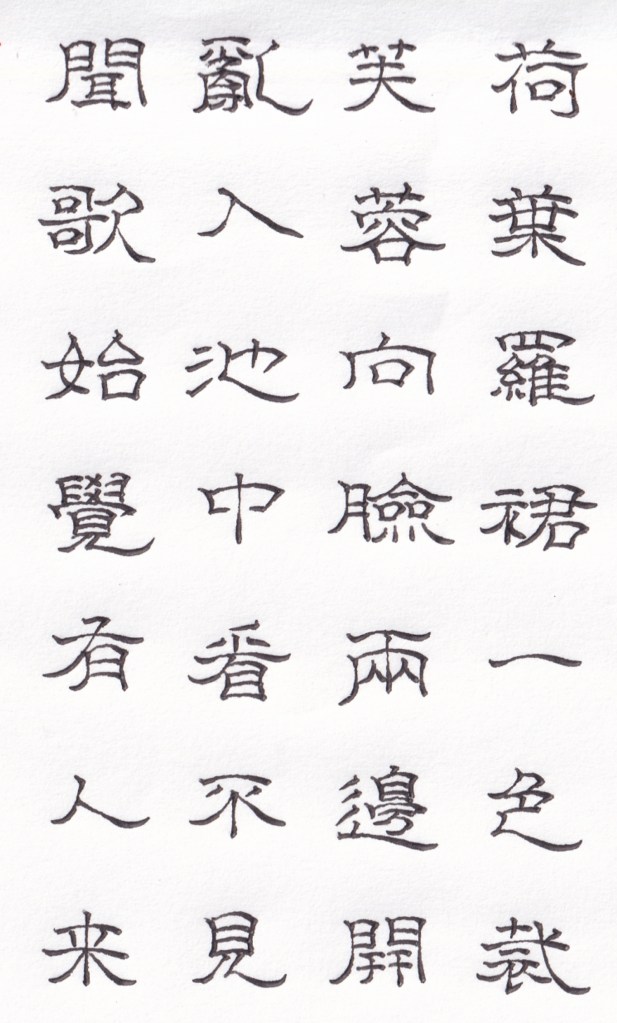 荷葉羅裙一色裁
芙蓉向臉兩邊開
亂入池中看不見
聞歌始覺有人来